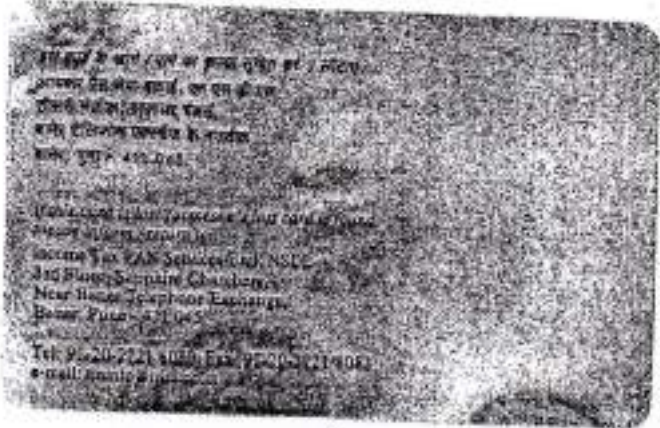 इस कार्ड के खोने / पाने पर कृपया सूचित करें / लौटाएं
आयकर पैन सेवा इकाई, एन एस डी एल
तीसरी मंजिल, सफायर चेंबर्स,
बानेर टेलिफोन एक्सचेंज के नजदीक
बानेर, पुना -
If this card is lost / someone's lost card is found,
please inform / return to
Income Tax PAN Services Unit, NSDL
3rd Floor, Sapphire Chambers,
Near Baner Telephone Exchange,
Baner, Pune -
Tel: 91-20-2721 8080, Fax: 91-20-2721 8081
e-mail: